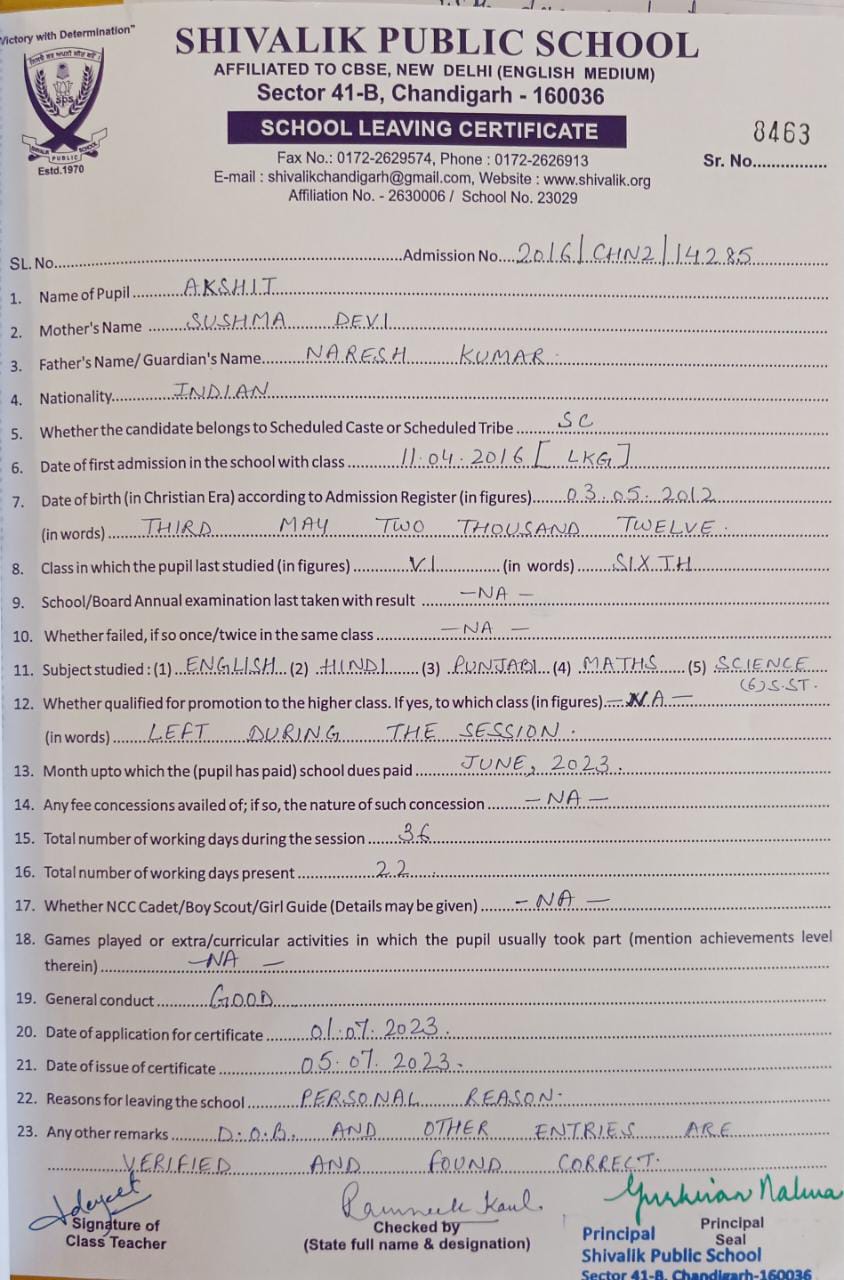 Victory with Determination"
SHIVALIK PUBLIC SCHOOL
AFFILIATED TO CBSE, NEW DELHI (ENGLISH MEDIUM)
Sector 41-B, Chandigarh - 160036
SCHOOL LEAVING CERTIFICATE
sps
SHIVALIK PUBLIC SCHOOL
Estd.1970
Fax No.: 0172-2629574, Phone : 0172-2626913
E-mail : shivalikchandigarh@gmail.com, Website : www.shivalik.org
Affiliation No. - 2630006 / School No. 23029
8463
Sr. No...............
SL. No.......... Admission No. 2016/CHN2/14285
1. Name of Pupil AKSHIT
2. Mother's Name SUSHMA DEVI
3. Father's Name/ Guardian's Name NARESH KUMAR.
4. Nationality INDIAN
5. Whether the candidate belongs to Scheduled Caste or Scheduled Tribe SC
6. Date of first admission in the school with class 11.04.2016 [LKG]
7. Date of birth (in Christian Era) according to Admission Register (in figures) 03.05.2012
(in words) THIRD MAY TWO THOUSAND TWELVE.
8. Class in which the pupil last studied (in figures) VI (in words) SIXTH
9. School/Board Annual examination last taken with result -NA-
10. Whether failed, if so once/twice in the same class -NA-
11. Subject studied : (1) ENGLISH (2) HINDI (3) PUNJABI (4) MATHS (5) SCIENCE
(6) S.ST.
12. Whether qualified for promotion to the higher class. If yes, to which class (in figures) -NA-
(in words) LEFT DURING THE SESSION.
13. Month upto which the (pupil has paid) school dues paid JUNE, 2023.
14. Any fee concessions availed of; if so, the nature of such concession -NA-
15. Total number of working days during the session 36
16. Total number of working days present 22
17. Whether NCC Cadet/Boy Scout/Girl Guide (Details may be given) -NA-
18. Games played or extra/curricular activities in which the pupil usually took part (mention achievements level
therein) -NA-
19. General conduct GOOD
20. Date of application for certificate 01.07.2023.
21. Date of issue of certificate 05.07.2023.
22. Reasons for leaving the school PERSONAL REASON.
23. Any other remarks D.O.B. AND OTHER ENTRIES ARE
VERIFIED AND FOUND CORRECT.
Signature of
Class Teacher
Ramneek Kaul.
Checked by
(State full name & designation)
Gurkiran Nalwa
Principal
Seal
Principal
Shivalik Public School
Sector 41-B, Chandigarh-160036